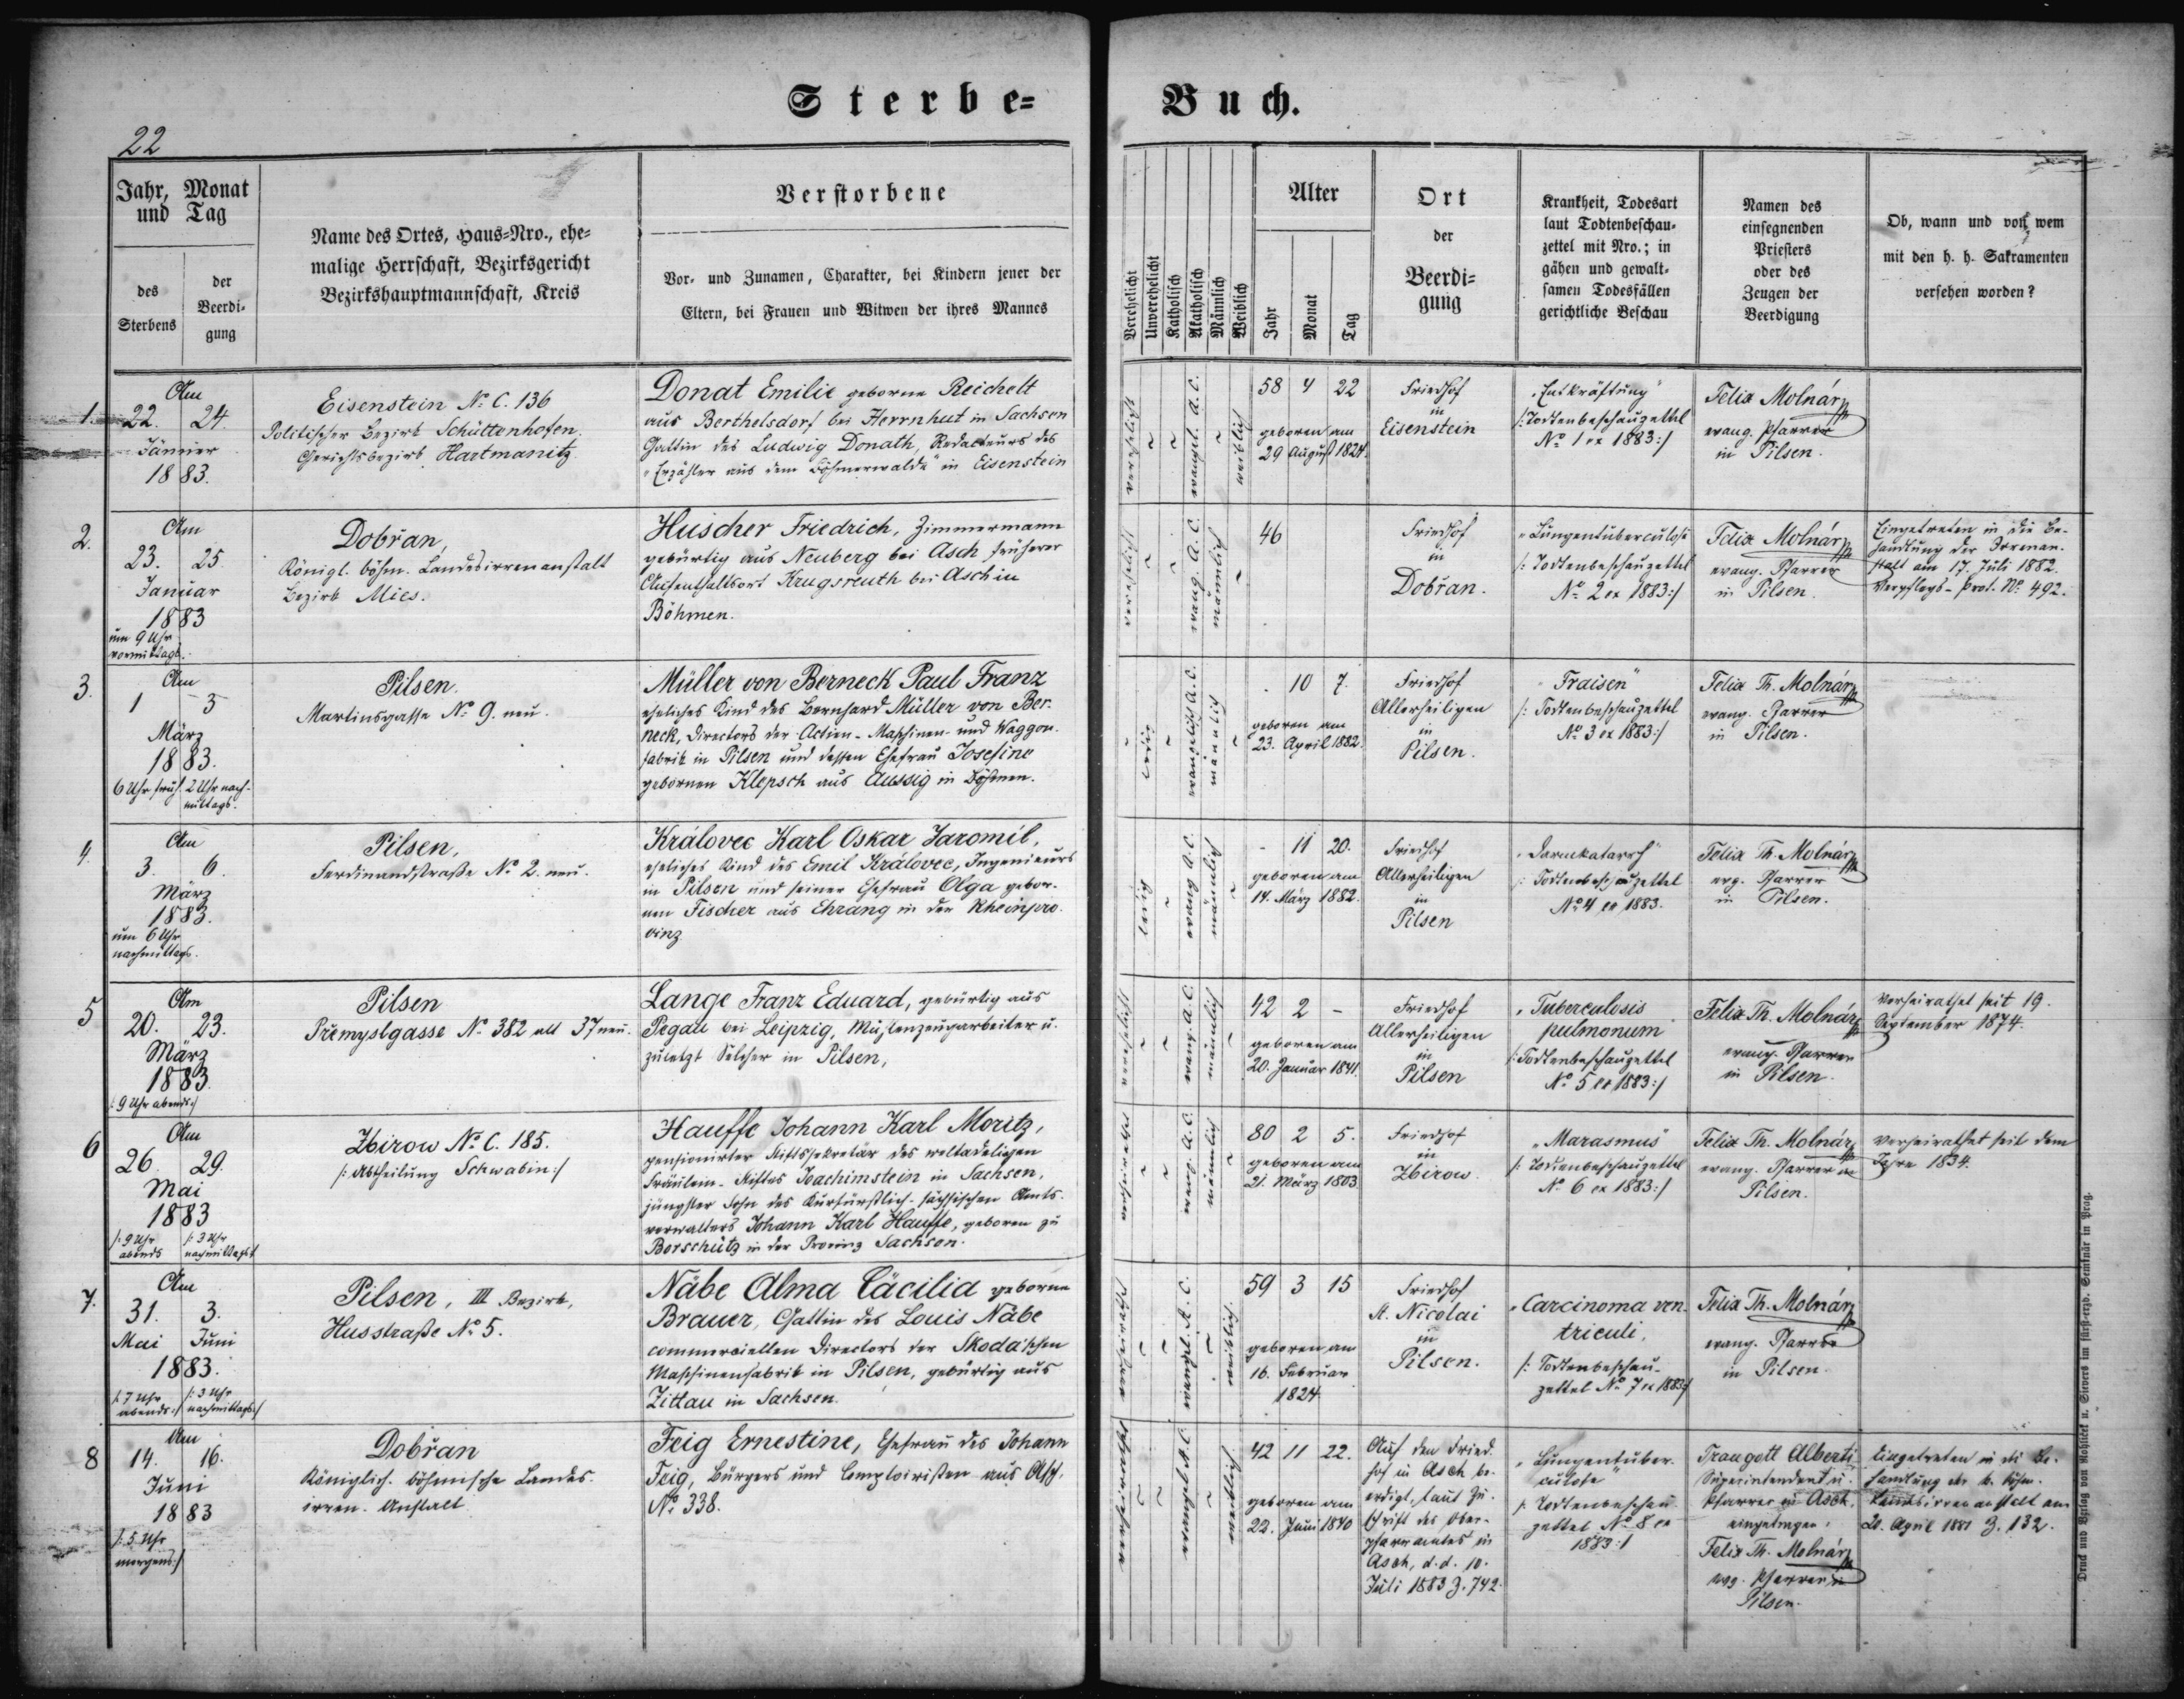 Sterbe-
Buch.
22
Jahr, Monat
und Tag
des
Sterbens
der
Beerdi-
gung
Name des Ortes, Haus-Nro., ehe-
malige Herrschaft, Bezirksgericht
Bezirkshauptmannschaft, Kreis
Verstorbene
Vor- und Zunamen, Charakter, bei Kindern jener der
Eltern, bei Frauen und Witwen der ihres Mannes
Verehelicht
Unverehelicht
Katholisch
Akatholisch
Männlich
Weiblich
Alter
Jahr
Monat
Tag
Ort
der
Beerdi-
gung
Krankheit, Todesart
laut Todtenbeschau-
zettel mit Nro.; in
gähen und gewalt-
samen Todesfällen
gerichtliche Beschau
Namen des
einsegnenden
Priesters
oder des
Zeugen der
Beerdigung
Ob, wann und von wem
mit den h. h. Sakramenten
versehen worden?
1.
Am
22. 24.
Jänner
1883.
Eisenstein No. C. 136
Politischer Bezirk Schüttenhofen,
Gerichtsbezirk Hartmanitz
Donat Emilie geborne Reichelt
aus Berthelsdorf bei Herrnhut in Sachsen
Gattin des Ludwig Donath, Redakteurs des
"Erzähler aus dem Böhmerwalde" in Eisenstein
verehelicht
evangel. A. C.
weiblich
58 4 22
geboren am
29 August 1824
Friedhof
in
Eisenstein
"Entkräftung"
/:Todtenbeschauzettel
No. 1 ex 1883:/
Felix Molnár
evang. Pfarrer
in Pilsen.
2.
Am
23. 25
Januar
1883
um 9 Uhr
vormittags.
Dobřan,
Königl. böhm. Landesirrenanstalt
Bezirk Mies.
Huscher Friedrich, Zimmermann
gebürtig aus Neuberg bei Asch früherer
Aufenthaltsort Krugsreuth bei Asch in
Böhmen.
verehelicht
evang. A. C.
männlich
46
Friedhof
in
Dobřan.
"Lungentuberculose
/: Todtenbeschauzettel
No. 2 ex 1883:/
Felix Molnár
evang. Pfarrer
in Pilsen.
Eingetreten in die Be-
handlung der Irrenan-
stalt am 17. Juli 1882.
Verpflegs-Prot. No. 492.
3.
Am
1 3
März
1883.
6 Uhr früh. 2 Uhr nach-
mittags.
Pilsen.
Martinsgasse No. 9. neu.
Müller von Berneck Paul Franz
eheliches Kind des Bernhard Müller von Ber-
neck, Directors der Actien-Maschinen- und Waggon-
fabrik in Pilsen und dessen Ehefrau Josefine
gebornen Klepsch aus Aussig in Böhmen.
ledig
evangelisch A. C.
männlich
. 10 7.
geboren am
23. April 1882.
Friedhof
Allerheiligen
in
Pilsen.
"Fraisen"
/: Todtenbeschauzettel
No. 3 ex 1883:/
Felix Th. Molnár
evang. Pfarrer
in Pilsen.
4.
Am
3. 6.
März
1883.
um 6 Uhr
nachmittags.
Pilsen,
Ferdinandstraße No. 2. neu.
Královec Karl Oskar Jaromil,
eheliches Kind des Emil Královec, Ingenieurs
in Pilsen und seiner Ehefrau Olga gebor-
nen Fischer aus Ehrang in der Rheinpro-
vinz
ledig
evang A. C.
männlich
- 11 20.
geboren am
14. März 1882.
Friedhof
Allerheiligen
in
Pilsen
"Darmkatarrh"
/: Todtenbeschauzettel
No. 4 ex 1883.
Felix Th. Molnár
evg. Pfarrer
in Pilsen.
5
Am
20. 23.
März
1883
/: 9 Uhr abends:/
Pilsen
Přemyslgasse No. 382 alt 37 neu.
Lange Franz Eduard, gebürtig aus
Pegau bei Leipzig, Mützenzeugarbeiter u.
zuletzt Selcher in Pilsen,
verehelicht
evang. A. C.
männlich
42 2 -
geboren am
20. Januar 1841.
Friedhof
Allerheiligen
in
Pilsen
"Tuberculosis
pulmonum
/:Todtenbeschauzettel
No. 5 ex 1883:/
Felix Th. Molnár
evang. Pfarrer
in Pilsen.
Verheirathet seit 19.
September 1874.
6
Am
26. 29.
Mai
1883
/: 9 Uhr
abends
/: 3 Uhr
nachmittags:/
Zbirow No. C. 185.
/: Abtheilung Schwabin:/
Hauffe Johann Karl Moritz,
pensionirter Stiftssekretär des weltadeligen
Fräulein-Stiftes Joachimstein in Sachsen,
jüngster Sohn des Kurfürstlich-sächsischen Amts-
verwalters Johann Karl Hauffe, geboren zu
Borschütz in der Provinz Sachsen.
verheirathet
evang. A. C.
männlich
80 2 5.
geboren am
21. März 1803
Friedhof
in
Zbirow.
"Marasmus"
/: Todtenbeschauzettel
No. 6 ex 1883:/
Felix Th. Molnár
evang. Pfarrer in
Pilsen.
Verheirathet seit dem
Jahre 1834.
7.
Am
31. 3.
Mai Juni
1883.
/: 7 Uhr
abends:/
/: 3 Uhr
nachmittags:/
Pilsen, III Bezirk,
Husstraße No. 5.
Näbe Alma Cäcilia geborne
Brauer, Gattin des Louis Näbe
commerciellen Directors der Skoda'schen
Maschinenfabrik in Pilsen, gebürtig aus
Zittau in Sachsen.
evangel. A. C.
weiblich.
59 3 15
geboren am
16. Februar
1824
Friedhof
St. Nicolai
in
Pilsen.
"Carcinoma ven-
triculi,
/: Todtenbeschau-
zettel No. 7 ex 1883:/
Felix Th. Molnár
evang. Pfarrer
in Pilsen.
8
Am
14. 16.
Juni
1883
/: 5 Uhr
morgens:/
Dobřan
Königlich. böhmische Landes-
irren-Anstalt.
Feig Ernestine, Ehefrau des Johann
Feig, Bürgers und Comptoiristen aus Asch.
No. 338.
verheirathet
evangel. A. C.
weiblich
42 11 22.
geboren am
22. Juni 1840
Auf den Fried-
hof in Asch be-
erdigt, laut Zu-
schrift des Ober-
pfarramtes in
Asch, d. d. 10.
Juli 1883 Z. 742.
"Lungentuber-
culose"
/: Todtenbeschau-
zettel No. 8 ex
1883:/
Traugott Alberti
Superintendent u.
Pfarrer in Asch.
eingetragen:
Felix Th. Molnár
evg. Pfarrer in
Pilsen.
Eingetreten in die Be-
handlung der k. böhm.
Landesirrenanstalt am
20. April 1881 Z. 132.
Druck und Verlag von Rohlicek u. Sievers im fürst-erzb. Seminär in Prag.